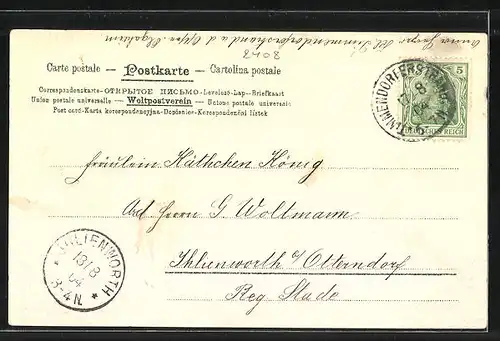 2408
Carte postale — Postkarte — Cartolina postale
Correspondenzkarte-ОТКРЫТОЕ ПИСЬМО-Levelező-Lap--Briefkaart
Union postale universelle — Weltpostverein — Unione postale universale
Post card-Karta korespondencyjna-Dopisnice-Korespondenční lístek
TIMMENDORFERSTRAND
5
DEUTSCHES REICH
Fräulein Käthchen König
Adr. Herrn G. Woltmann
Ihlienworth b/ Otterndorf
Reg Stade
IHLIENWORTH
13/8
04
3-4N.